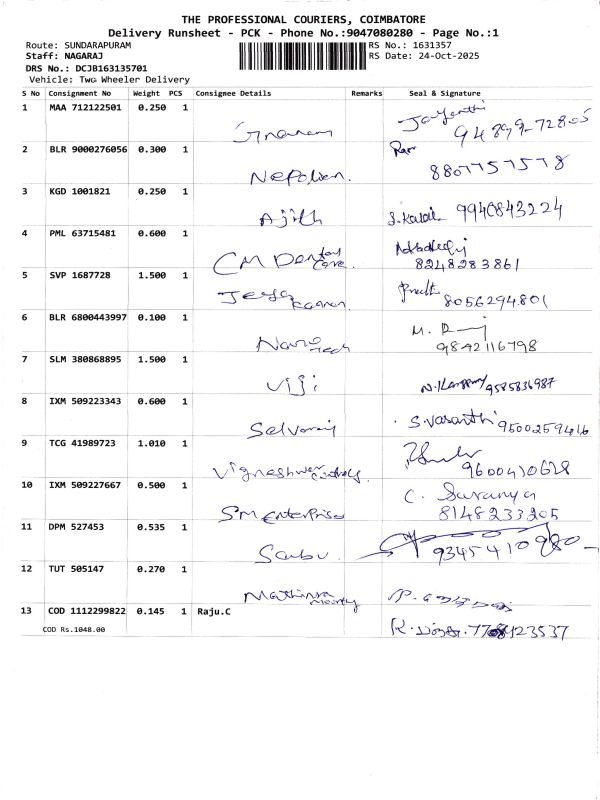 THE PROFESSIONAL COURIERS, COIMBATORE
Delivery Runsheet - PCK - Phone No.:9047080280 - Page No.:1
Route: SUNDARAPURAM RS No.: 1631357
Staff: NAGARAJ RS Date: 24-Oct-2025
DRS No.: DCJB163135701
Vehicle: Two Wheeler Delivery
S No Consignment No Weight PCS Consignee Details Remarks Seal & Signature
1 MAA 712122501 0.250 1
Jayanthi
2 BLR 9000276056 0.300 1
Nepolian. 8807757578
3 KGD 1001821 0.250 1
Ajith 9940843224
4 PML 63715481 0.600 1
CM Dental Care. 8248283861
5 SVP 1687728 1.500 1
Jeya 8056294801
6 BLR 6800443997 0.100 1
9842116798
7 SLM 380868895 1.500 1
Viji 9585836987
8 IXM 509223343 0.600 1
Selvaraj S. Vasanthi 9500259416
9 TCG 41989723 1.010 1
Vigneshwar Controls. 9600410628
10 IXM 509227667 0.500 1
SM Enterprises C. Saranya
8148233205
11 DPM 527453 0.535 1
Sabu. 9345410980
12 TUT 505147 0.270 1
13 COD 1112299822 0.145 1 Raju.C
COD Rs.1048.00